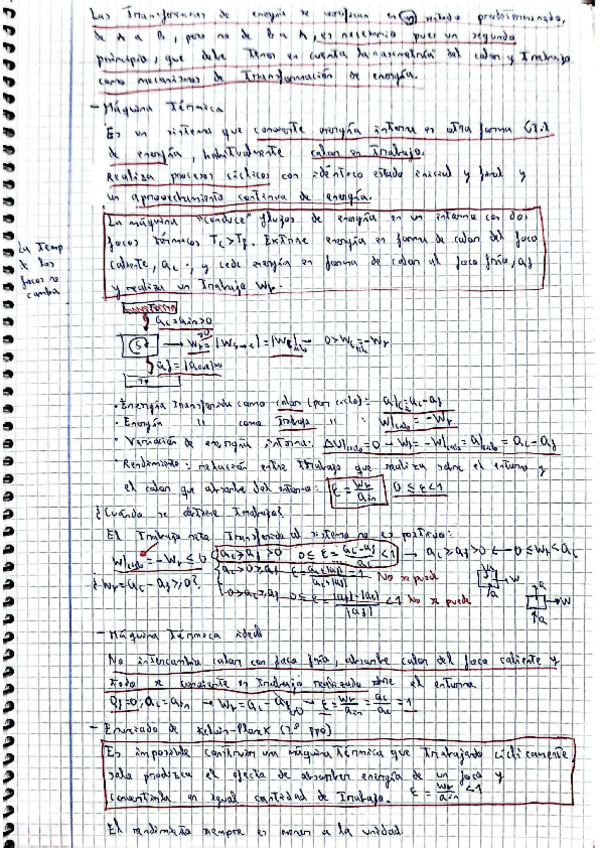 Las Transformac. de energía se verifican en un sentido predeterminado,
de A a B, pero no de B a A, es necesario pues un segundo
principio, que debe tener en cuenta la asimetría del calor y trabajo
como mecanismos de transformación de energía.
- Máquina Térmica
Es un sistema que convierte energía interna en otra forma
de energía, habitualmente calor en trabajo.
Realiza procesos cíclicos con idéntico estado inicial y final y
un aprovechamiento continuo de energía.
La máquina "conduce" flujos de energía en un entorno con dos
focos térmicos Tc > Tf. Extrae energía en forma de calor del foco
caliente, Qc, y cede energía en forma de calor al foco frío, Qf
y realiza un trabajo Wr.
La Temp
de los
focos no
cambia
Qc = Qin > 0
S
· Energía transferida como calor (por ciclo): Q|ciclo = Qc - Qf
· Energía " como trabajo " " : W|ciclo = -Wr
· Variación de energía interna: ΔU|ciclo = 0 → Wr = -W|ciclo = Q|ciclo = Qc - Qf
· Rendimiento: relación entre trabajo que realiza sobre el entorno y
el calor que absorbe del entorno: ε = Wr/Qin 0 ≤ ε < 1
¿Cuándo se obtiene trabajo?
El trabajo neto transferido al sistema no es positivo:
W|ciclo = -Wr ≤ 0
Qc ≥ Qf > 0 0 ≤ ε = (Qc - Qf)/Qc < 1 → Qc ≥ Qf > 0 ← 0 ≤ Wr < Qc
{Wr = Qc - Qf ≥ 0}
No se puede
No se puede
- Máquina Térmica ideal
No intercambia calor con foco frío, absorbe calor del foco caliente y
todo se convierte en trabajo realizado sobre el entorno
Qf = 0, Qc = Qin → Wr = Qc - Qf → ε = Wr/Qin = Qc/Qc = 1
- Enunciado de Kelvin-Planck (2º ppo)
Es imposible construir una máquina térmica que trabajando cíclicamente
solo produzca el efecto de absorber energía de un foco y
convertirla en igual cantidad de trabajo. ε = Wr/Qin < 1
El rendimiento siempre es menor a la unidad